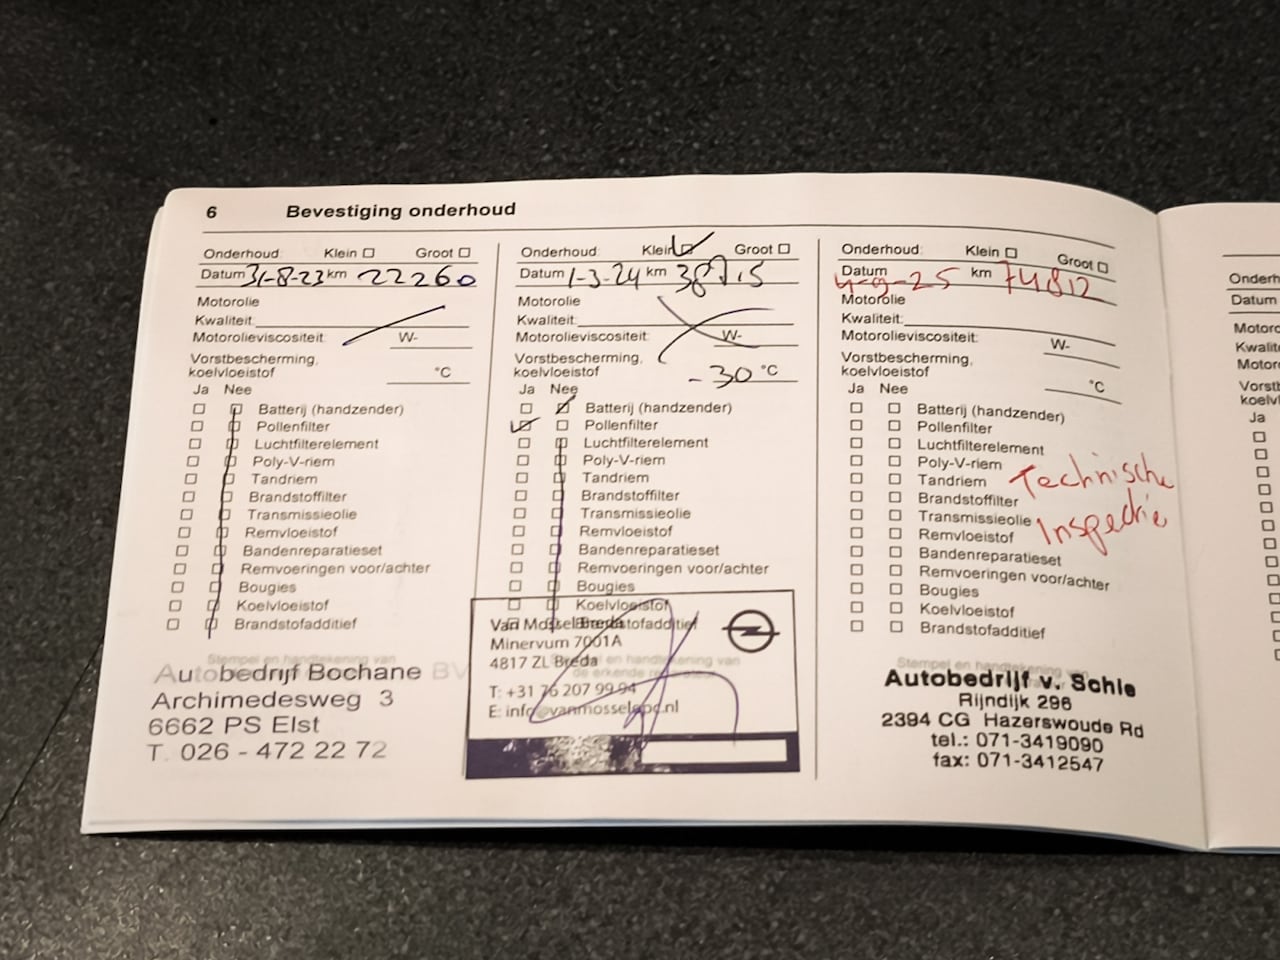 6 Bevestiging onderhoud
Onderhoud: Klein Groot
Datum 31-8-23 km 22260
Motorolie
Kwaliteit:
Motorolieviscositeit: W-
Vorstbescherming,
koelvloeistof °C
Ja Nee
Batterij (handzender)
Pollenfilter
Luchtfilterelement
Poly-V-riem
Tandriem
Brandstoffilter
Transmissieolie
Remvloeistof
Bandenreparatieset
Remvoeringen voor/achter
Bougies
Koelvloeistof
Brandstofadditief
Stempel en handtekening van
Autobedrijf Bochane BV
Archimedesweg 3
6662 PS Elst
T. 026 - 472 22 72
Onderhoud: Klein Groot
Datum 1-3-24 km
Motorolie
Kwaliteit:
Motorolieviscositeit: W-
Vorstbescherming,
koelvloeistof -30 °C
Ja Nee
Batterij (handzender)
Pollenfilter
Luchtfilterelement
Poly-V-riem
Tandriem
Brandstoffilter
Transmissieolie
Remvloeistof
Bandenreparatieset
Remvoeringen voor/achter
Bougies
Koelvloeistof
Brandstofadditief
Stempel en handtekening van
de erkende
Van Mossel Breda
Minervum 7001A
4817 ZL Breda
T: +31 76 207 99 94
E: info@vanmosselopc.nl
Onderhoud: Klein Groot
Datum 4-9-25 km 74812
Motorolie
Kwaliteit:
Motorolieviscositeit: W-
Vorstbescherming,
koelvloeistof °C
Ja Nee
Batterij (handzender)
Pollenfilter
Luchtfilterelement
Poly-V-riem
Tandriem
Brandstoffilter
Transmissieolie
Remvloeistof
Bandenreparatieset
Remvoeringen voor/achter
Bougies
Koelvloeistof
Brandstofadditief
Technische
Inspectie
Stempel en handtekening van
Autobedrijf v. Schie
Rijndijk 296
2394 CG Hazerswoude Rd
tel.: 071-3419090
fax: 071-3412547
Datum
Ja